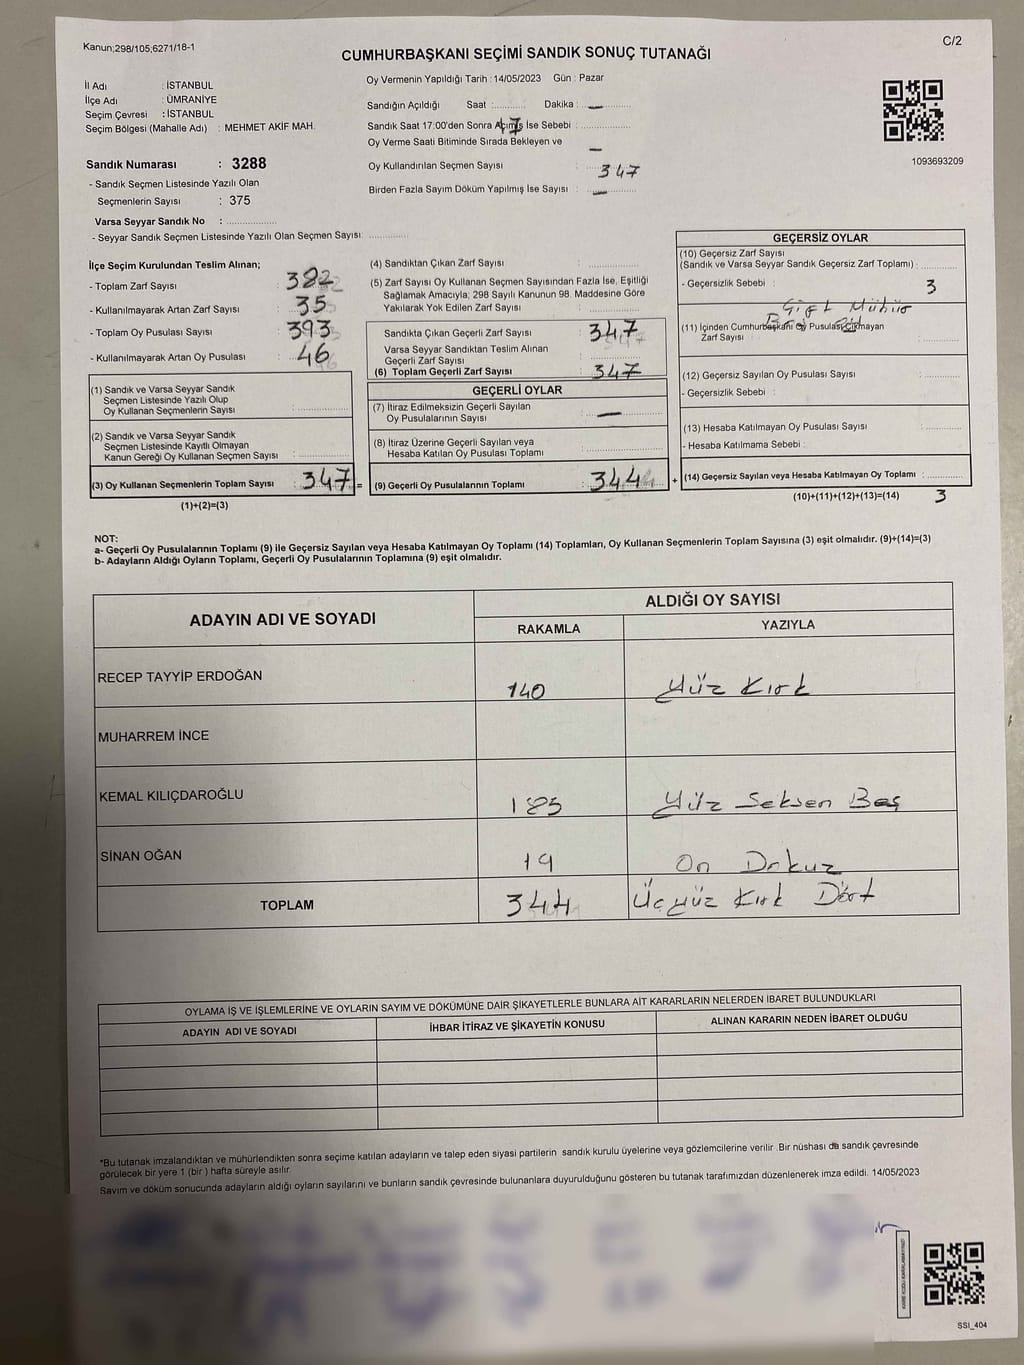 Kanun;298/105;6271/18-1
C/2
CUMHURBAŞKANI SEÇİMİ SANDIK SONUÇ TUTANAĞI
İl Adı : İSTANBUL
İlçe Adı : ÜMRANİYE
Seçim Çevresi : İSTANBUL
Seçim Bölgesi (Mahalle Adı) : MEHMET AKİF MAH.
Sandık Numarası : 3288
- Sandık Seçmen Listesinde Yazılı Olan
Seçmenlerin Sayısı : 375
Varsa Seyyar Sandık No : ..............
- Seyyar Sandık Seçmen Listesinde Yazılı Olan Seçmen Sayısı: ............
Oy Vermenin Yapıldığı Tarih : 14/05/2023 Gün : Pazar
Sandığın Açıldığı Saat :.......... Dakika : —
Sandık Saat 17:00'den Sonra Açılmış İse Sebebi : ..............
Oy Verme Saati Bitiminde Sırada Bekleyen ve
Oy Kullandırılan Seçmen Sayısı : 347
Birden Fazla Sayım Döküm Yapılmış İse Sayısı : —
1093693209
İlçe Seçim Kurulundan Teslim Alınan;
- Toplam Zarf Sayısı : 382
- Kullanılmayarak Artan Zarf Sayısı : 35
- Toplam Oy Pusulası Sayısı : 393
- Kullanılmayarak Artan Oy Pusulası : 46
(1) Sandık ve Varsa Seyyar Sandık
Seçmen Listesinde Yazılı Olup
Oy Kullanan Seçmenlerin Sayısı : ..............
(2) Sandık ve Varsa Seyyar Sandık
Seçmen Listesinde Kayıtlı Olmayan
Kanun Gereği Oy Kullanan Seçmen Sayısı : ..............
(3) Oy Kullanan Seçmenlerin Toplam Sayısı : 347 =
(1)+(2)=(3)
(4) Sandıktan Çıkan Zarf Sayısı : ..............
(5) Zarf Sayısı Oy Kullanan Seçmen Sayısından Fazla İse, Eşitliği
Sağlamak Amacıyla; 298 Sayılı Kanunun 98. Maddesine Göre
Yakılarak Yok Edilen Zarf Sayısı : ..............
Sandıkta Çıkan Geçerli Zarf Sayısı : 347
Varsa Seyyar Sandıktan Teslim Alınan
Geçerli Zarf Sayısı : ..............
(6) Toplam Geçerli Zarf Sayısı : 347
GEÇERLİ OYLAR
(7) İtiraz Edilmeksizin Geçerli Sayılan
Oy Pusulalarının Sayısı : —
(8) İtiraz Üzerine Geçerli Sayılan veya
Hesaba Katılan Oy Pusulası Toplamı : ..............
(9) Geçerli Oy Pusulalarının Toplamı : 344 +
GEÇERSİZ OYLAR
(10) Geçersiz Zarf Sayısı
(Sandık ve Varsa Seyyar Sandık Geçersiz Zarf Toplamı) : ............
- Geçersizlik Sebebi : 3
Çift Mühür
(11) İçinden Cumhurbaşkanı Oy Pusulası Çıkmayan
Zarf Sayısı : ............
(12) Geçersiz Sayılan Oy Pusulası Sayısı : ............
- Geçersizlik Sebebi :
(13) Hesaba Katılmayan Oy Pusulası Sayısı : ............
- Hesaba Katılmama Sebebi :
(14) Geçersiz Sayılan veya Hesaba Katılmayan Oy Toplamı : ............
(10)+(11)+(12)+(13)=(14) 3
NOT:
a- Geçerli Oy Pusulalarının Toplamı (9) ile Geçersiz Sayılan veya Hesaba Katılmayan Oy Toplamı (14) Toplamları, Oy Kullanan Seçmenlerin Toplam Sayısına (3) eşit olmalıdır. (9)+(14)=(3)
b- Adayların Aldığı Oyların Toplamı, Geçerli Oy Pusulalarının Toplamına (9) eşit olmalıdır.
ADAYIN ADI VE SOYADI
ALDIĞI OY SAYISI
RAKAMLA YAZIYLA
RECEP TAYYİP ERDOĞAN 140 Yüz Kırk
MUHARREM İNCE
KEMAL KILIÇDAROĞLU 185 Yüz Seksen Beş
SİNAN OĞAN 19 On Dokuz
TOPLAM 344 Üçyüz Kırk Dört
OYLAMA İŞ VE İŞLEMLERİNE VE OYLARIN SAYIM VE DÖKÜMÜNE DAİR ŞİKAYETLERLE BUNLARA AİT KARARLARIN NELERDEN İBARET BULUNDUKLARI
ADAYIN ADI VE SOYADI İHBAR İTİRAZ VE ŞİKAYETİN KONUSU ALINAN KARARIN NEDEN İBARET OLDUĞU
*Bu tutanak imzalandıktan ve mühürlendikten sonra seçime katılan adayların ve talep eden siyasi partilerin sandık kurulu üyelerine veya gözlemcilerine verilir .Bir nüshası da sandık çevresinde
görülecek bir yere 1 (bir ) hafta süreyle asılır.
Sayım ve döküm sonucunda adayların aldığı oyların sayılarını ve bunların sandık çevresinde bulunanlara duyurulduğunu gösteren bu tutanak tarafımızdan düzenlenerek imza edildi. 14/05/2023
SSI_404